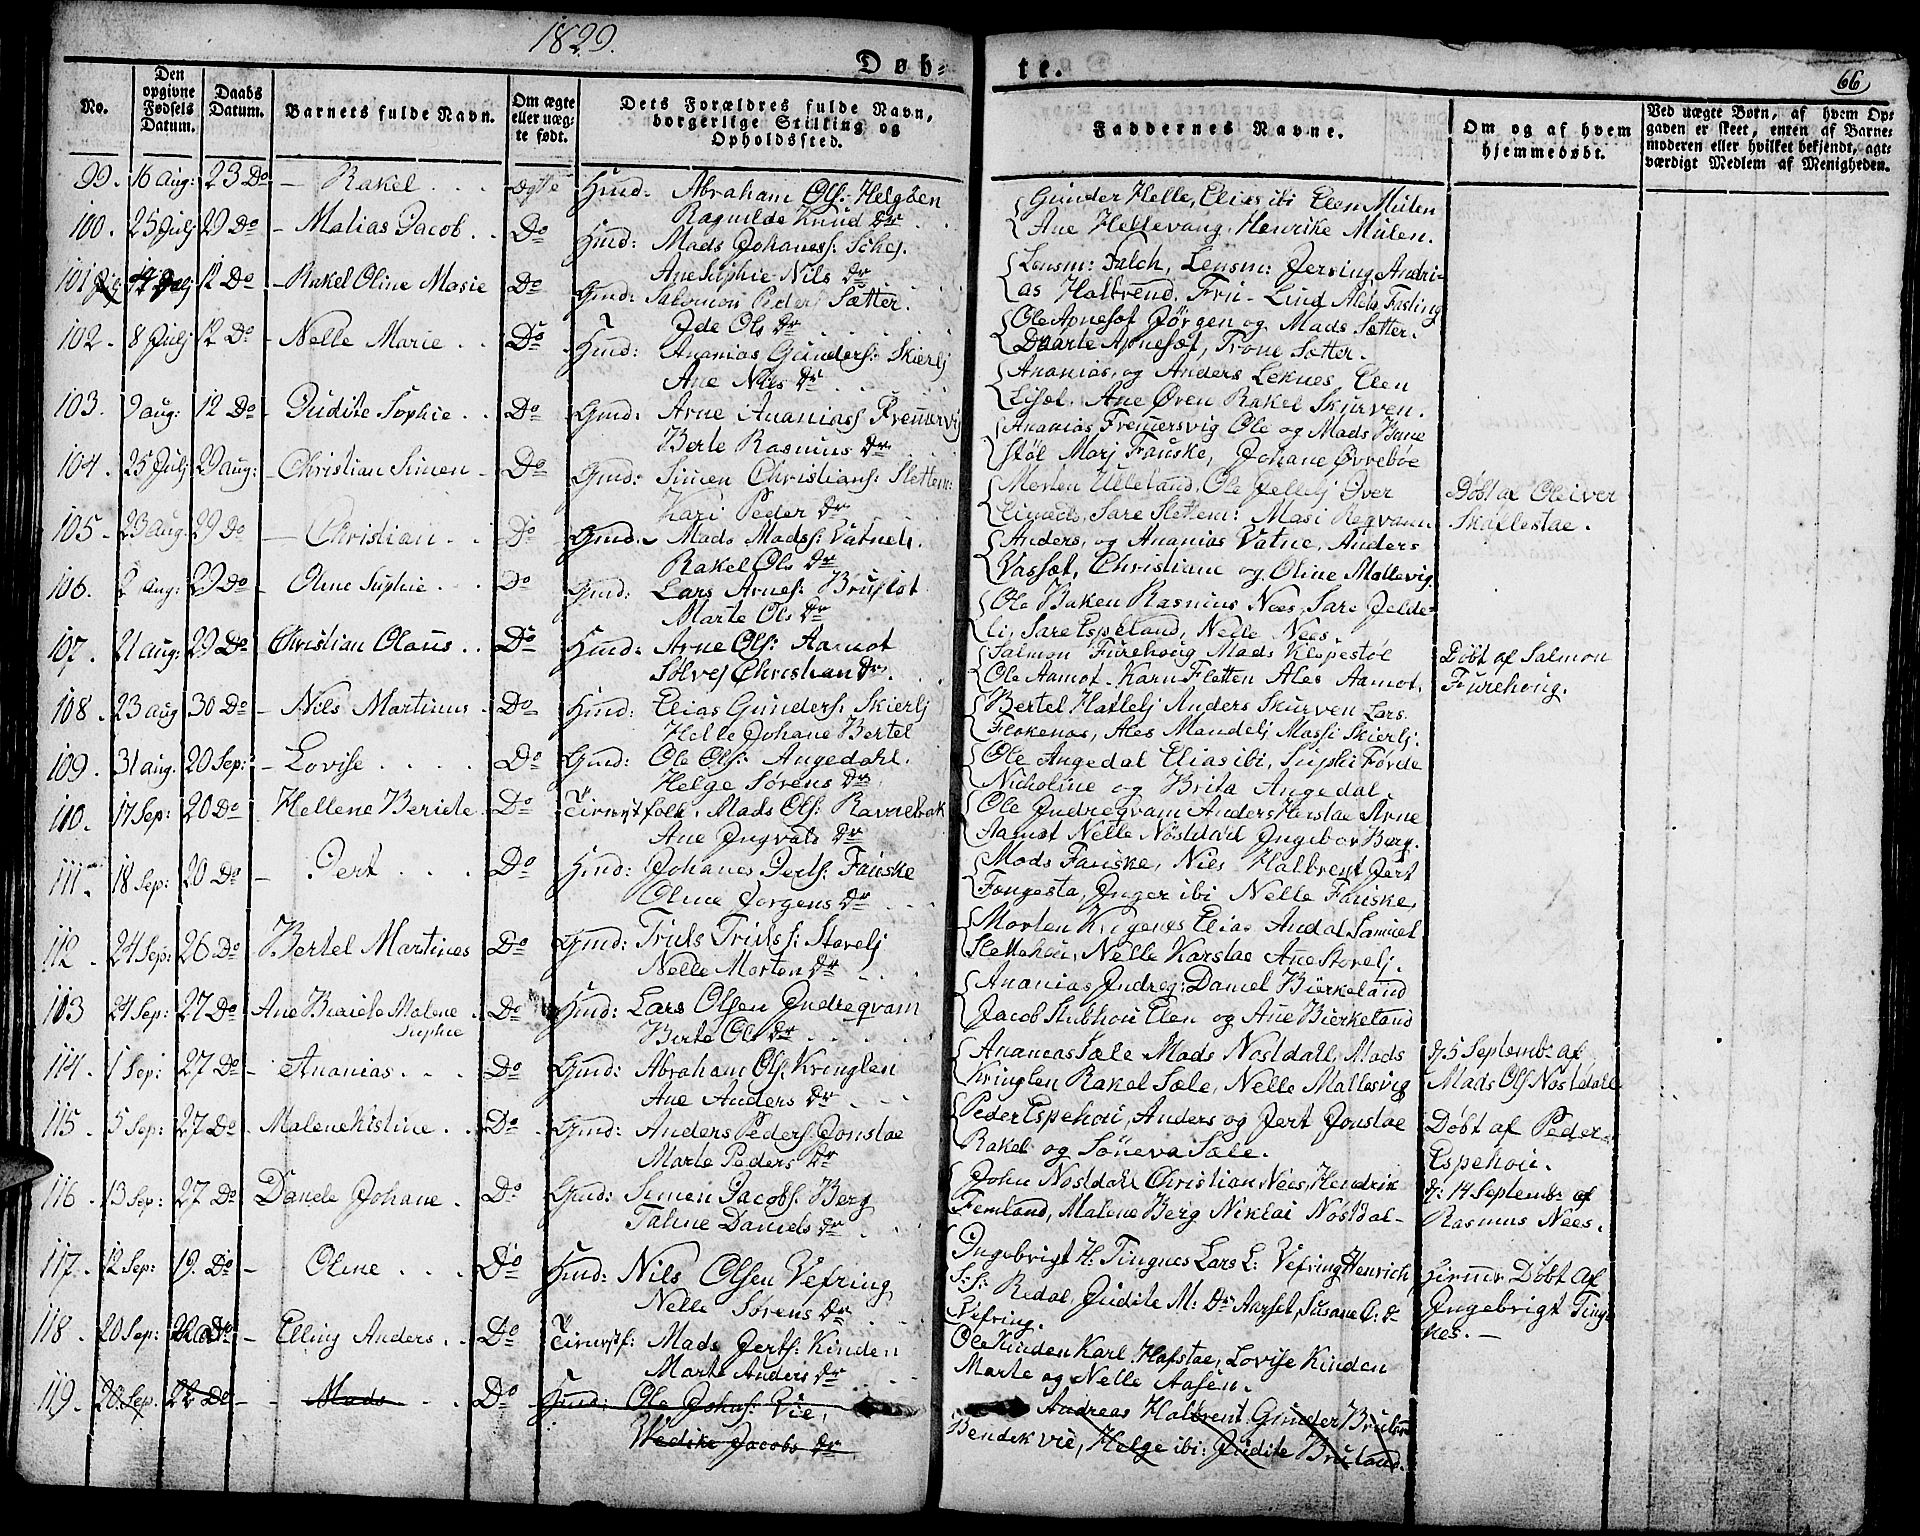 1829.
Døb-
te.
66
No.
Den opgivne Fødsels Datum.
Daabs Datum.
Barnets fulde Navn.
Om ægte eller uægte født.
Dets Forældres fulde Navn, borgerlige Stilling og Opholdssted.
Faddernes Navne.
Om og af hvem hjemmedøbt.
Ved uægte Børn, af hvem Opgaden er skeet, enten af Barnemoderen eller hvilket bekjendt, agtværdigt Medlem af Menigheden.
99. 16 aug: 23 Do - Rakel ægte Hmd: Abraham Ols: Helgøen
Ragnilde Knud Dr
Gunder Helle, Elias ibi Elen Mülen
Ane Hellevang, Henrike Mülen.
100. 25 Julj 29 Do - Matias Jacob Do Hmd: Mads Johaness: Schej
Ane Sophie Nils Dr
Lensm: Falch, Lensm: Jersing, Andri-
as Halbrend, Fru Lind Aleta Fasting
101 Julj 12 Do - Rakel Oline Marie Do Gmd: Salomon Peders Sætter.
Ide Ols Dr
Ole Apneset Jörgen og Mads Sætter.
Daarte Apneset, Trone Sætter.
102. 8 Julj 12 Do Nelle Marie Do Hmd: Ananias Gunders: Skierlj
Ane Nils Dr
Ananias, og Anders Leknes Elen
Ane Øren Rakel Skurven.
103. 9 aug: 12 Do - Judite Sophie Do Gmd: Arne Ananiass Fremersvig
Berte Rasmus Dr
Ananias Fremersvig Ole og Mads Bune
støl Marj Fauske, Johane Øvrebøe
104. 25 Julj 29 aug: - Christian Simen - Do Gmd: Simen Christians: Slettem:
Kari Peder Dr
Morten Ulleland, Ole Jellelj Over
Sare Slettem: Masi Regvam
Døbt af Oliver
Skallestae.
105. 23 aug. 29 Do - Christian Do Gmd: Mads Madss: Vatneli.
Rakel Ols Dr
Anders, og Ananias Vatne, Anders
Vasset, Christiane og Oline Mallevig.
106. 2 aug: 29 Do - Oline Sophie Do Gmd: Lars Arnes: Bruflot
Marte Ols Dr
Ole Bakken Rasmus Nees, Sare Jelde-
li, Sare Espeland, Nelle Nees.
107. 21 aug: 29 Do Christian Olaus Do Hmd: Arne Ols: Aamot
Solvej Christian Dr.
Salmon Furehoug Mads Klopestöl
Ole Aamot Karn Fletten Ales Aamot,
Döbt af Salmon
Furehoug.
108. 23 aug 30 Do - Nils Martinus Do Hmd: Elias Gunders: Skierlj
Helle Johane Bertel
Bertel Hatlelj Anders Skurven Lars
Flokenas, Ales Mandelj Massi Skierlj.
109. 31 aug. 20 Sep: - Lovise Do Gmd: Ole Ols: Angedahl.
Helge Sørens Dr
Ole Angedal Elias ibi, Suphi Førde
Nicholine og Brita Angedal.
110. 17 Sep: 20 Do Hellene Beride Do Tienistfolk, Mads Ols: Ravnebak
Ane Ingvald Dr
Ole Indregvam Anders Herstae Arne
Aamot Nelle Nöstdal Ingebor Berg.
111. 18 Sep: 20 Do - Jert Do Hmd: Johanes Jerts: Fauske
Oline Jorgens Dr
Mads Fauske, Nils Halbrent Jert
Fongesta, Inger ibi Nelle Fauske,
112. 24 Sep: 26 Do Bertel Martines Do Gmd: Truls Truls: Storelj
Nelle Morten Dr
Morten Krigenes Elias Andal Samuel
Slettehou, Nelle Karstae Ane Storelj.
113 24 Sep: 27 Do Ane Malene Do Hmd: Lars Olsen Indregvam
Suphie
Berte Ols Dr
Ananias Indreg: Daniel Bierkeland
Jacob Stubhou Elen og Ane Bierkeland
114. 1 Sep: 27 Do - Ananias Do Gmd: Abraham Ols: Kringlen
Ane Anders Dr
Ananias Sæle Mads Nostdahl, Mads
Kringlen Rakel Sæle, Nelle Mallesvig
d/5 Septembr af
Mads Ols Nostdahl
115. 5 Sep: 27 Do Malene Kistine Do Gmd: Anders Peders: Jonstae
Marte Peders Dr
Peder Espehou, Anders og Jert Jonstae
Rakel og Söneva Sæle.
Døbt af Peder
Espehou.
116 13 Sep: 27 Do Danele Johane Do Gmd: Simen Jacobs: Berg
Taline Daniels Dr
John Nostdahl Christian Nees, Hendrik
Femland, Malene Berg Niklai Nöstdal
d: 14 Septembr af
Rasmus Nees.
117. 12 Sep: 19. Do - Oline Do Hmd: Nils Olsen Vefring
Nelle Sørens Dr
Ingebrigt H: Tingnes Lars L: Vefring Henrich
S:S: Redal, Judite M: Dr Aarset, Susane O: d
Vefring.
Hiemr Döbt Af
Ingebrigt Ting
nes.
118. 20 Sep: Do - Elling Anders Do Tienistf: Mads Jerts: Kinden
Marte Anders Dr
Ole Kinden Karl Hafstae, Lovise Kinden
Marte og Nelle Aasen.
119. 20. Sep. 22 Do - Mads Do Hmd: Ole Johas: Vie,
Wedike Jacobs Dr
Andreas Halbrent Gunder Bruland
Bendik vie, Helge ibi: Judite Bruland.